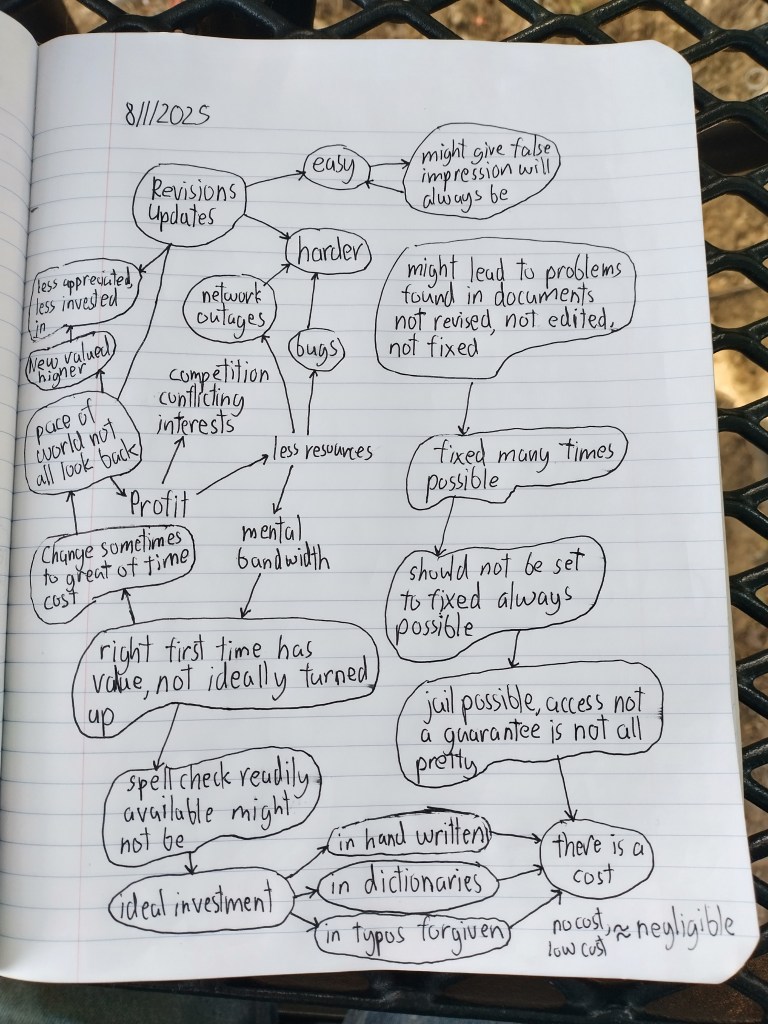 8/1/2025
easy
might give false
impression will
always be
Revisions
Updates
harder
less appreciated,
less invested
in
network
outages
might lead to problems
found in documents
not revised, not edited,
not fixed
New valued
higher
bugs
competition
conflicting
interests
pace of
world not
all look back
less resources
fixed many times
possible
Profit
mental
bandwidth
Change sometimes
to great of time
cost
should not be set
to fixed always
possible
right first time has
value, not ideally turned
up
jail possible, access not
a guarantee is not all
pretty
spell check readily
available might
not be
in hand written
there is a
cost
in dictionaries
ideal investment
in typos forgiven
no cost, ≈ negligible
low cost